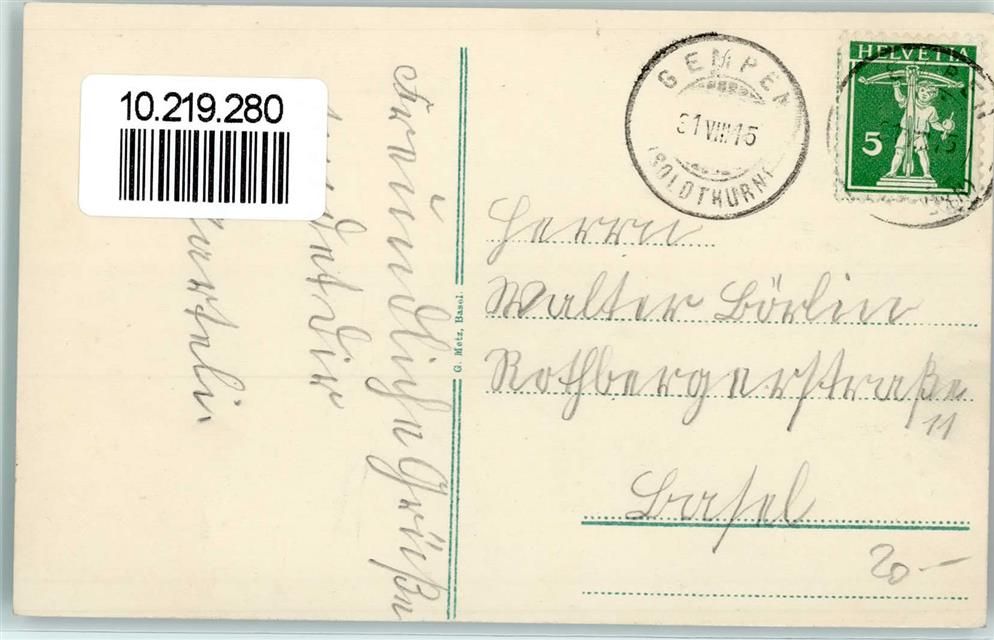 10.219.280
GEMPEN
31 VIII 15
(SOLOTHURN)
HELVETIA
5
Herrn
Walter Börlin
Rothbergerstraße
11
Basel
20 —
G. Metz, Basel.
Freundliche Grüße
det Dir